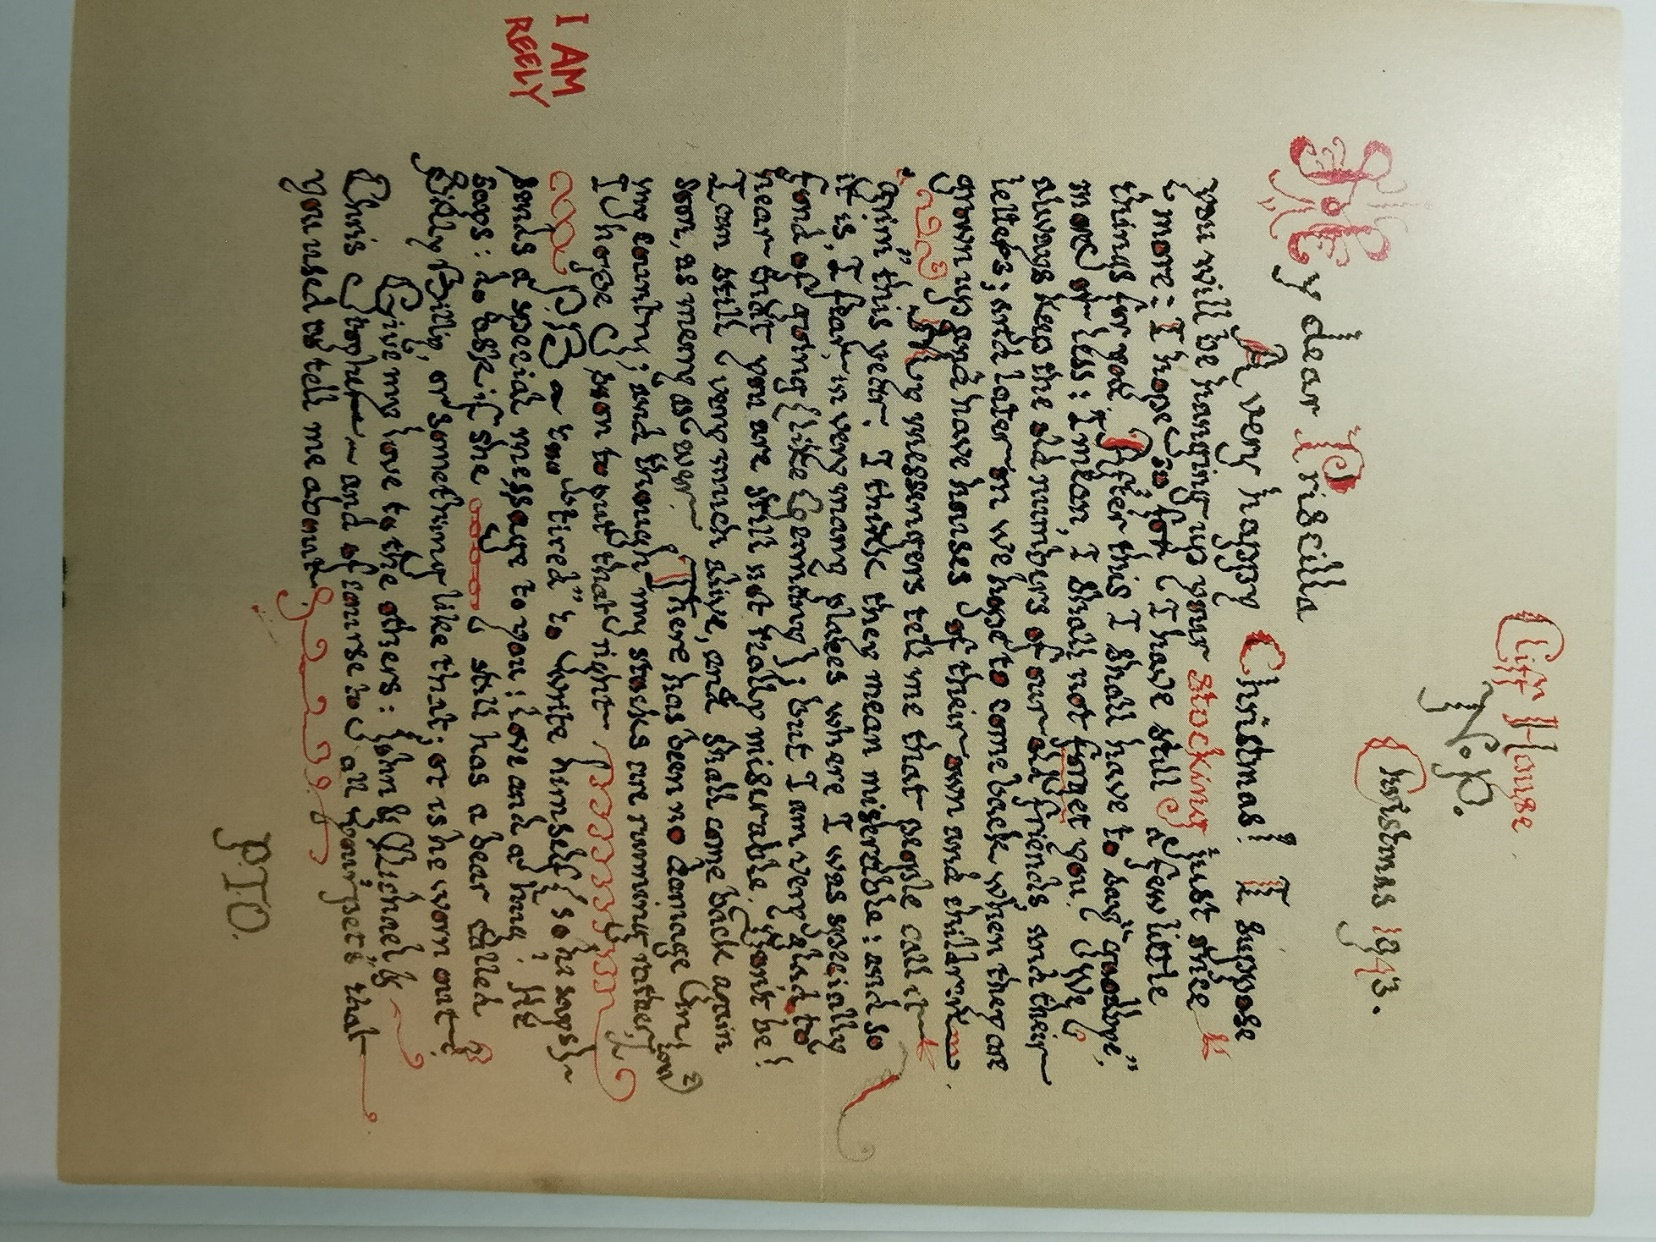 Cliff House
N.P.
Christmas 1943.
My dear Priscilla
A very happy Christmas! I suppose
you will be hanging up your stocking just once
more: I hope so for I have still a few little
things for you. After this I shall have to say "goodbye,"
more or less: I mean, I shall not forget you. We
always keep the old numbers of our old friends, and their
letters; and later on we hope to come back when they are
grown up and have houses of their own and children.
My messengers tell me that people call it
"grim" this year. I think they mean miserable: and so
it is, I fear, in very many places where I was specially
fond of going; but I am very glad to
hear that you are still not really miserable. Don't be!
I am still very much alive, and shall come back again
soon, as merry as ever. There has been no damage in
my country; and though my stocks are running rather low
I hope soon to put that right
P.B ~ too "tired" to write himself (so he says) ~
I AM
REELY
sends a special message to you: love and a hug! He
says: do ask if she still has a bear called
Silly Billy, or something like that; or is he worn out?
Give my love to the others: John & Michael &
Christopher ~ and of course to all your "pets" that
you used to tell me about
PTO.